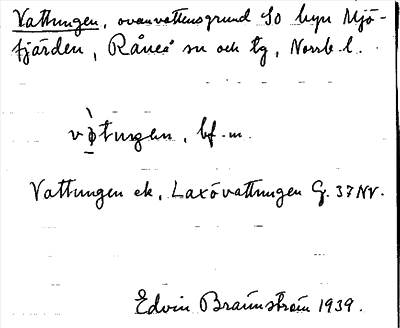 Vattungen, ovanvattensgrund SO byn Mjö-
fjärden, Råneå sn och tg, Norrb. l.
vǫ̀tuŋən, bf. m.
Vattungen ek., Laxövattungen G. 37 NV.
Edvin Brännström 1939.